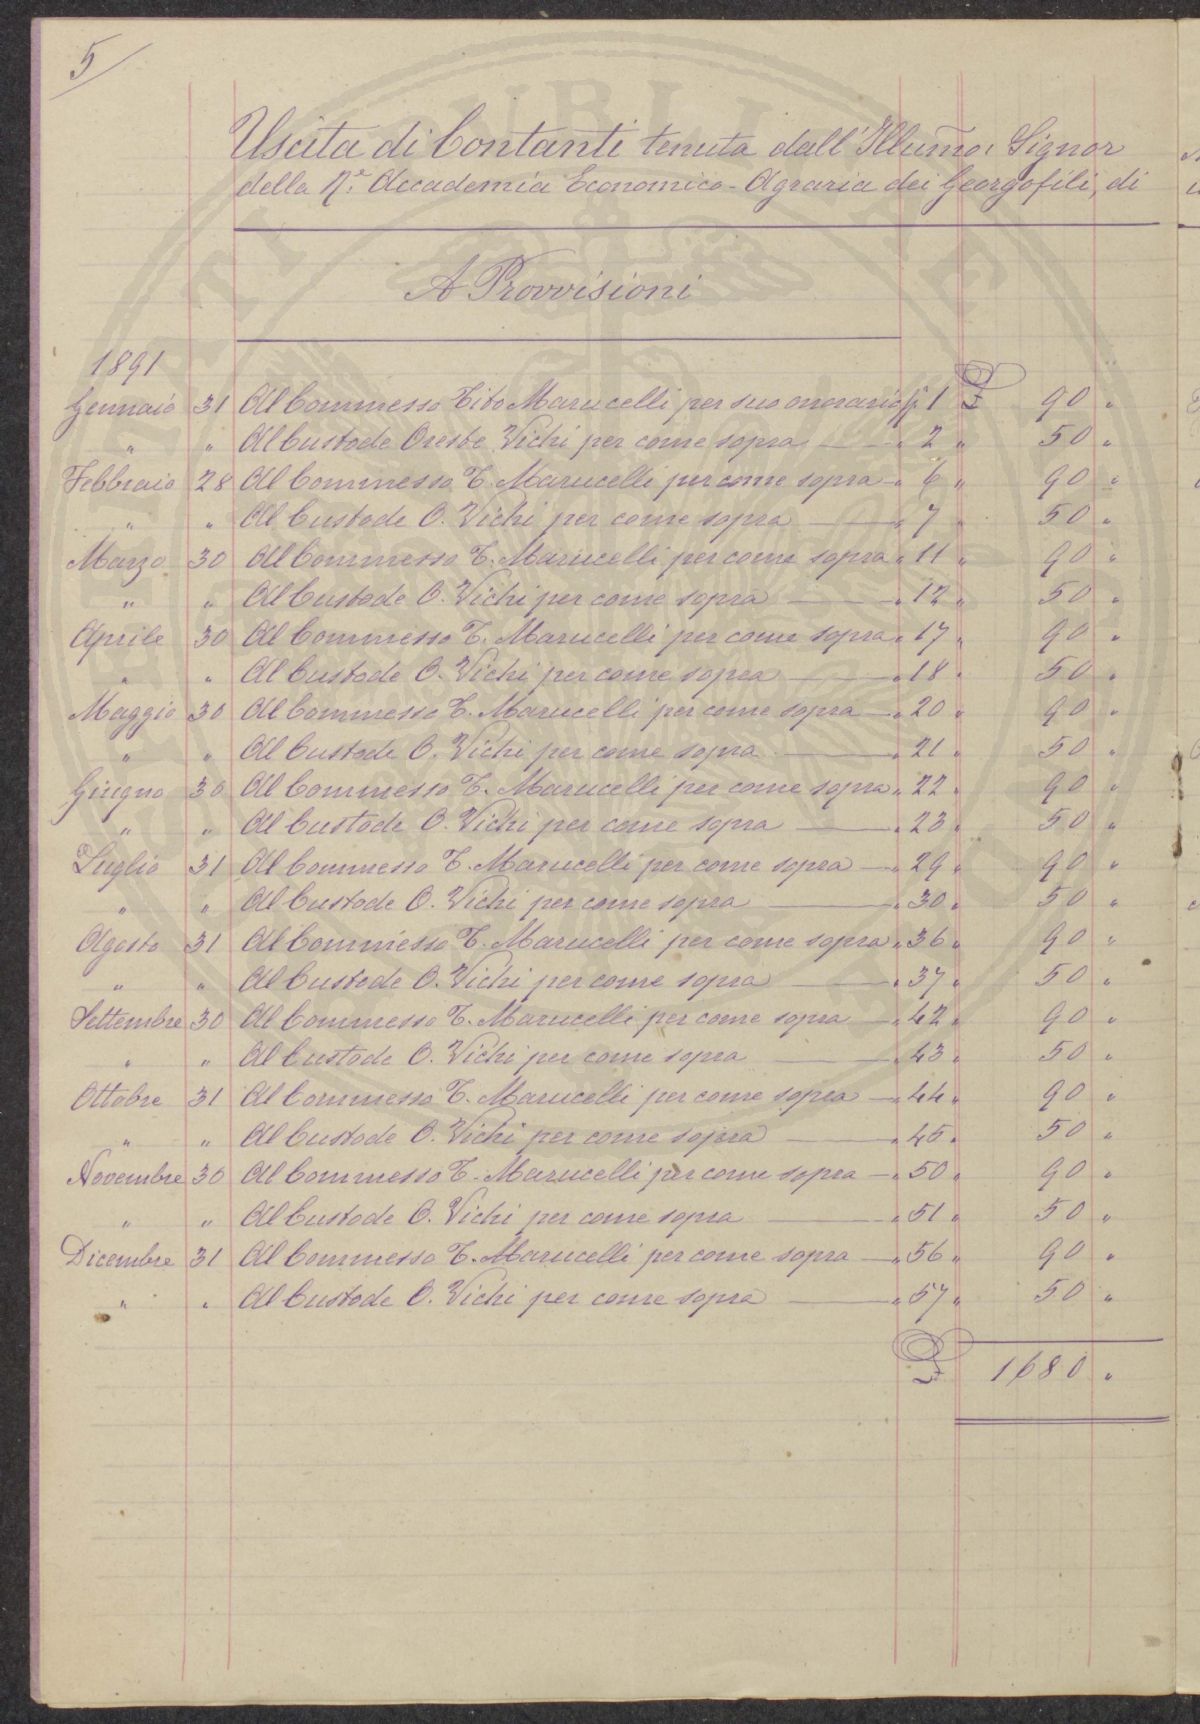 5
Uscita di Contanti tenuta dall'Illumo: Signor
della R.e Accademia Economico-Agraria dei Georgofili, di
A Provvisioni
1891
Gennaio 31 Al Commesso Tito Marucelli per suo onorario 1 £ 90 "
" " Al Custode Oreste Vichi per come sopra — " 2 " 50 "
Febbraio 28 Al Commesso T. Marucelli per come sopra - " 6 " 90 "
" " Al Custode O. Vichi per come sopra — " 7 " 50 "
Marzo 30 Al Commesso T. Marucelli per come sopra " 11 " 90 "
" " Al Custode O. Vichi per come sopra — " 12 " 50 "
Aprile 30 Al Commesso T. Marucelli per come sopra " 17 " 90 "
" " Al Custode O. Vichi per come sopra — " 18 " 50 "
Maggio 30 Al Commesso T. Marucelli per come sopra — " 20 " 90 "
" " Al Custode O. Vichi per come sopra — " 21 " 50 "
Giugno 30 Al Commesso T. Marucelli per come sopra " 22 " 90 "
" " Al Custode O. Vichi per come sopra — " 23 " 50 "
Luglio 31 Al Commesso T. Marucelli per come sopra — " 29 " 90 "
" " Al Custode O. Vichi per come sopra — " 30 " 50 "
Agosto 31 Al Commesso T. Marucelli per come sopra " 36 " 90 "
" " Al Custode O. Vichi per come sopra — " 37 " 50 "
Settembre 30 Al Commesso T. Marucelli per come sopra — " 42 " 90 "
" " Al Custode O. Vichi per come sopra — " 43 " 50 "
Ottobre 31 Al Commesso T. Marucelli per come sopra — " 44 " 90 "
" " Al Custode O. Vichi per come sopra — " 45 " 50 "
Novembre 30 Al Commesso T. Marucelli per come sopra — " 50 " 90 "
" " Al Custode O. Vichi per come sopra — " 51 " 50 "
Dicembre 31 Al Commesso T. Marucelli per come sopra — " 56 " 90 "
" " Al Custode O. Vichi per come sopra — " 57 " 50 "
£ 1680 "